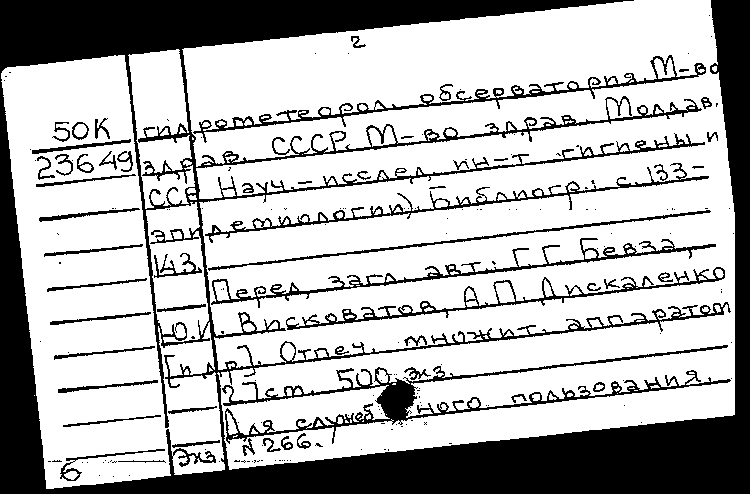 2
50К гидрометеорол. обсерватория. М-во
23649 здрав. СССР. М-во здрав. Молдав.
ССР. Науч.-исслед. ин-т гигиены и
эпидемиологии). Библиогр.: с. 133-
143.
Перед загл. авт.: Г.Г. Бевза,
Ю.И. Висковатов, А.П. Дискаленко
[и др]. Отпеч. множит. аппаратом
27 см. 500 экз.
Для служебного пользования.
Экз. № 266.
6